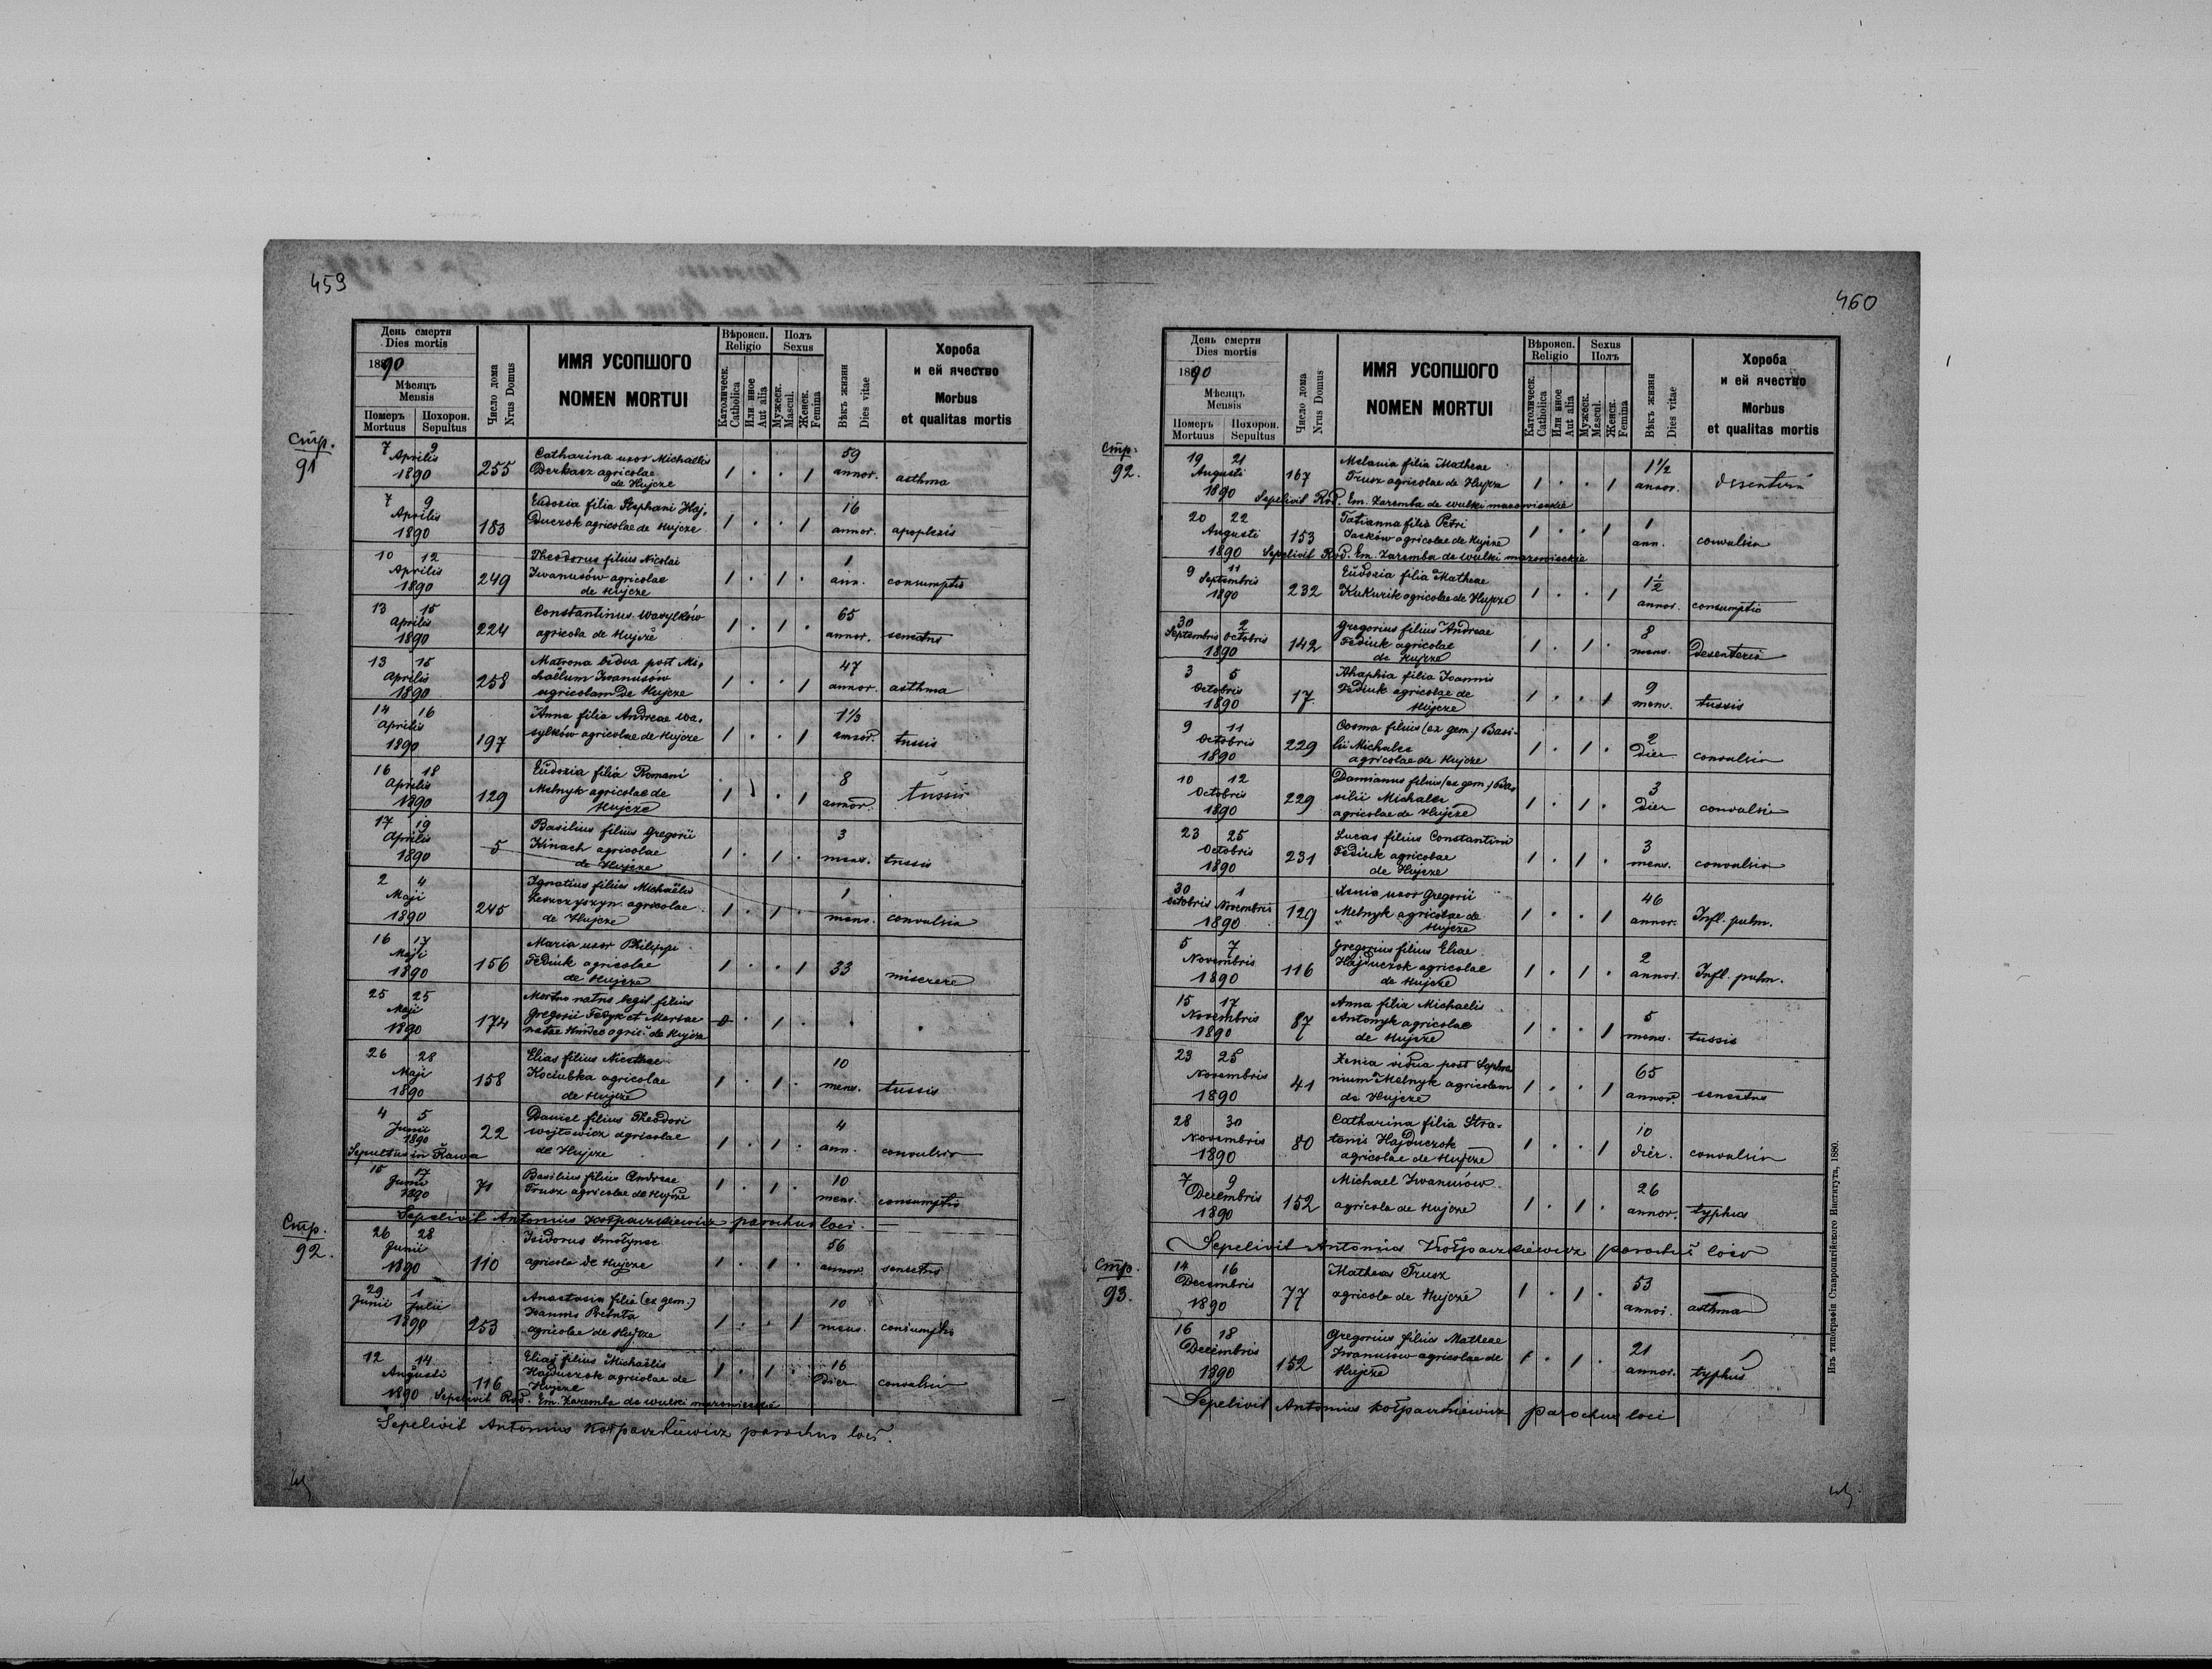 459
День смерти
Dies mortis
1890
Мѣсяцъ
Mensis
Померъ Похорон.
Mortuus Sepultus
Число дома
Nrus Domus
ИМЯ УСОПШОГО
NOMEN MORTUI
Вѣроисп.
Religio
Католическ.
Catholica
Или иное
Aut alia
Полъ
Sexus
Мужеск.
Mascul.
Женск.
Femina
Вѣкъ жизни
Dies vitae
Хороба
и ей ячество
Morbus
et qualitas mortis
Стр.
91
7 9 Catharina uxor Michaelis 59
Aprilis 255 Derkacz agricolae 1 . . 1 annor. asthma
1890 de Hujcze
7 9 Eudoxia filia Stephani Haj- 16
Aprilis 183 duczok agricolae de Hujcze 1 . . 1 annor. apoplexis
1890
10 12 Theodorus filius Nicolai 1
Aprilis 249 Iwanusów agricolae 1 . 1 . ann. consumptio
1890 de Hujcze
13 15 Constantinus Wasylków 65
Aprilis 224 agricola de Hujcze 1 . 1 . annor. senectus
1890
13 15 Matrona vidva post Mi- 47
Aprilis 258 chaëlum Iwanusów 1 . . 1 annor. asthma
1890 agricolam de Hujcze
14 16 Anna filia Andreae Wa- 1 1/3
Aprilis 197 sylków agricolae de Hujcze 1 . . 1 annor. tussis
1890
16 18 Eudoxia filia Romani 8
Aprilis 129 Melnyk agricolae de 1 . 1 annor. tussis
1890 Hujcze
17 19 Basilius filius Gregorii 3
Aprilis 5 Kinach agricolae 1 . 1 . mens. tussis
1890 de Hujcze
2 4 Ignatius filius Michaëlis 1
Maji 245 Leszczyszyn agricolae 1 . 1 . mens. convulsio
1890 de Hujcze
16 17 Maria uxor Philippi
Maji 156 Fediuk agricolae 1 . . 1 33 miserere
1890 de Hujcze
25 25 Mortuo natus legit. filius
Maji 174 Gregorii Fedyk et Mariae 0 . 1 . . .
1890 natae agric. de Hujcze
26 28 Elias filius Nicethae 10
Maji 158 Kociubka agricolae 1 . 1 . mens. tussis
1890 de Hujcze
4 5 Daniel filius Theodori 4
Junii 22 Wojtowicz agricolae 1 . 1 . ann. convulsio
1890 de Hujcze
Sepultus in Rawa
15 17 Basilius filius Andreae 10
Junii 71 Trusz agricolae de Hujcze 1 . 1 . mens. consumptio
1890
Sepelivit Antonius Kołpaczkiewicz parochus loci.
Стр.
92.
26 28 Isidorus Smołynec 56
Junii 110 agricola de Hujcze 1 . 1 . annor. senectus
1890
29 1 Anastasia filia (ex gem.) 10
Junii Julii Ioannis
1890 253 agricolae de Hujcze 1 . . 1 mens. consumptio
12 14 Elias filius Michaëlis 16
Augusti 116 Hajduczok agricolae de 1 . 1 . dier convulsio
Hujcze
1890 Sepelivit Rvd. Em. Zaremba de Wulki mazowieckie
Sepelivit Antonius Kołpaczkiewicz parochus loci.
460
День смерти
Dies mortis
1890
Мѣсяцъ
Mensis
Померъ Похорон.
Mortuus Sepultus
Число дома
Nrus Domus
ИМЯ УСОПШОГО
NOMEN MORTUI
Вѣроисп.
Religio
Католическ.
Catholica
Или иное
Aut alia
Sexus
Полъ
Мужеск.
Mascul.
Женск.
Femina
Вѣкъ жизни
Dies vitae
Хороба
и ей ячество
Morbus
et qualitas mortis
Стр.
92.
19 21 Melania filia Matheae 1 1/2
Augusti 167 Trusz agricolae de Hujcze 1 . . 1 annor.
1890 Sepelivit Rvd. Em. Zaremba de Wulki mazowieckie
20 22 Tatianna filia Petri 1
Augusti 153 Jacków agricolae de Hujcze 1 . . 1 ann. convulsio
1890 Sepelivit Rvd. Em. Zaremba de Wulki mazowieckie
9 11 Eudoxia filia Matheae 1 1/2
Septembris 232 Kukurik agricolae de Hujcze 1 . . 1 annor. consumptio
1890
30 2 Gregorius filius Andreae 8
Septembris Octobris 142 Fediuk agricolae 1 . 1 . mens. Desenteria
1890 de Hujcze
3 5 Ahaphia filia Ioannis 9
Octobris 17 Fediuk agricolae de 1 . . 1 mens. tussis
1890 Hujcze
9 11 Cosma filius (ex gem.) Basi- 2
Octobris 229 lii Michalec 1 . 1 . dier convulsio
1890 agricolae de Hujcze
10 12 Damianus filius (ex gem.) Ba- 3
Octobris 229 silii Michalec 1 . 1 . dier convulsio
1890 agricolae de Hujcze
23 25 Lucas filius Constantini 3
Octobris 231 Fediuk agricolae 1 . 1 . mens. convulsio
1890 de Hujcze
30 1 Xenia uxor Gregorii 46
Octobris Novembris 129 Melnyk agricolae de 1 . . 1 annor. Infl. pulm.
1890 Hujcze
5 7 Gregorius filius Eliae 2
Novembris 116 Hajduczok agricolae 1 . 1 . annor. Infl. pulm.
1890 de Hujcze
15 17 Anna filia Michaelis 5
Novembris 87 Antonyk agricolae 1 . . 1 mens. tussis
1890 de Hujcze
23 25 Xenia vidua post Sophro- 65
Novembris 41 nium Melnyk agricolam 1 . . 1 annor. senectus
1890 de Hujcze
28 30 Catharina filia Stra- 10
Novembris 80 tonis Hajduczok 1 . . 1 dier. convulsio
1890 agricolae de Hujcze
7 9 Michael Iwanusów 26
Decembris 152 agricola de Hujcze 1 . 1 . annor. typhus
1890
Sepelivit Antonius Kołpaczkiewicz parochus loci
Стр.
93.
14 16 Matheas Trusz 53
Decembris 77 agricola de Hujcze 1 . 1 . annor. asthma
1890
16 18 Gregorius filius Matheae 21
Decembris 152 Iwanusów agricolae de 1 . 1 . annor. typhus
1890 Hujcze
Sepelivit Antonius Kołpaczkiewicz parochus loci
Изъ типографіи Ставропигійского Института, 1880.